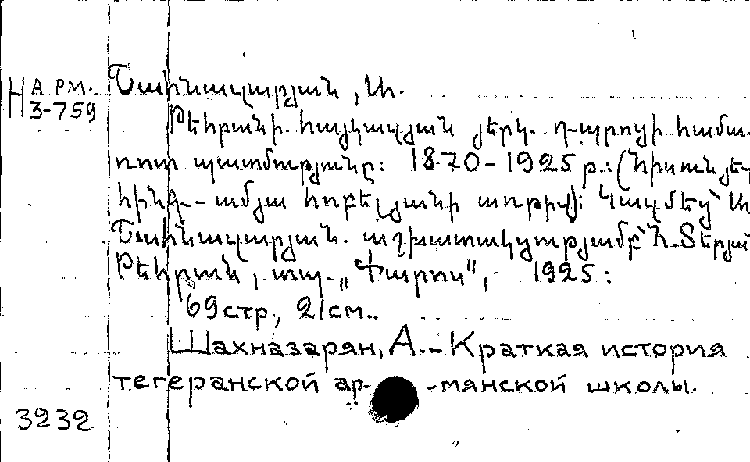 АРМ.
Н 3-759
Շահնազարյան, Ա.
Թեհրանի հայկական երկ. դպրոցի համա-
ռոտ պատմությունը: 1870-1925 թ.: (Հիսուն եւ
հինգ-ամյա հոբելյանի առթիվ): Կազմեց՝ Ա.
Շահնազարյան. աշխատակցությամբ՝ Հ. Տերյան
Թեհրան, տպ. „Փարոս", 1925:
69 стр., 21 см.
Шахназарян, А. - Краткая история
тегеранской ар- -мянской школы.
3232